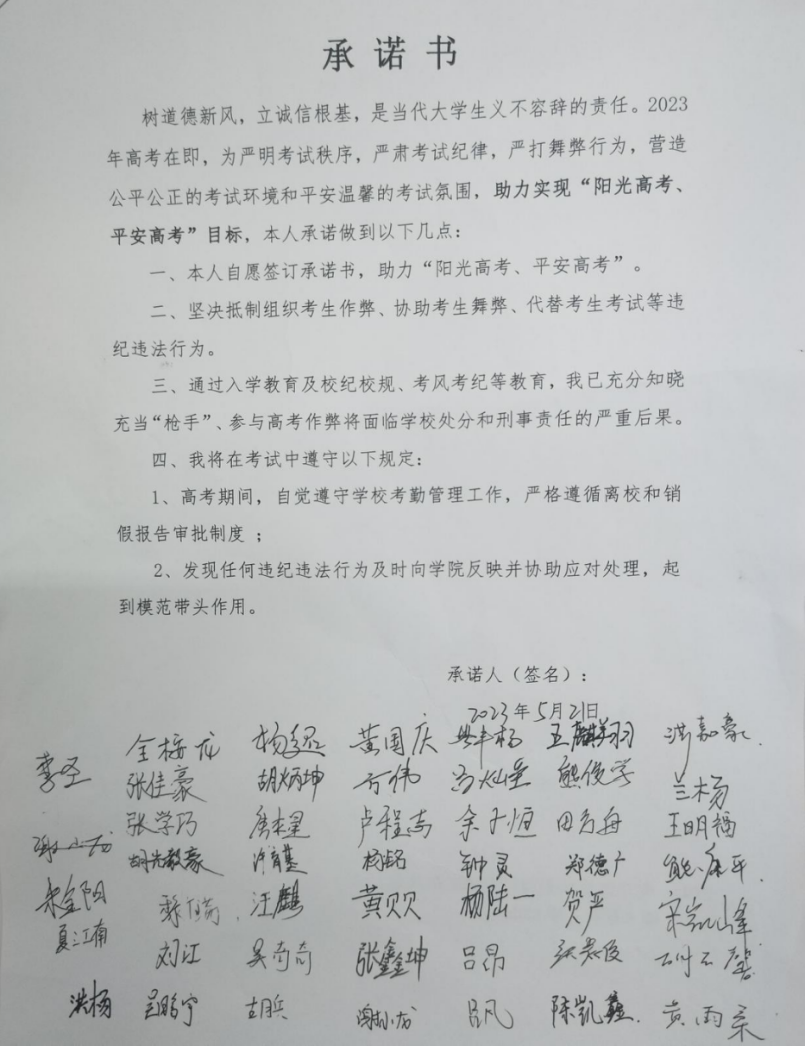 承诺书
树道德新风，立诚信根基，是当代大学生义不容辞的责任。2023
年高考在即，为严明考试秩序，严肃考试纪律，严打舞弊行为，营造
公平公正的考试环境和平安温馨的考试氛围，助力实现“阳光高考、
平安高考”目标，本人承诺做到以下几点：
一、本人自愿签订承诺书，助力“阳光高考、平安高考”。
二、坚决抵制组织考生作弊、协助考生舞弊、代替考生考试等违
纪违法行为。
三、通过入学教育及校纪校规、考风考纪等教育，我已充分知晓
充当“枪手”、参与高考作弊将面临学校处分和刑事责任的严重后果。
四、我将在考试中遵守以下规定：
1、高考期间，自觉遵守学校考勤管理工作，严格遵循离校和销
假报告审批制度 ；
2、发现任何违纪违法行为及时向学院反映并协助应对处理，起
到模范带头作用。
承诺人（签名）：
2023年5月21日
黄国庆 王麒翔羽 洪嘉豪
张佳豪 胡炳坤 万伟 熊俊学 兰杨
张学巧 卢程志 余子恒 田方舟 王明福
杨铭 钟灵 郑德广
汪麒 黄贝贝 杨陆一 贺严 宋凯峰
夏江南 刘江 吴奇奇 张鑫坤 吕昂
洪杨 胡兵 陈凯鑫 黄雨亲